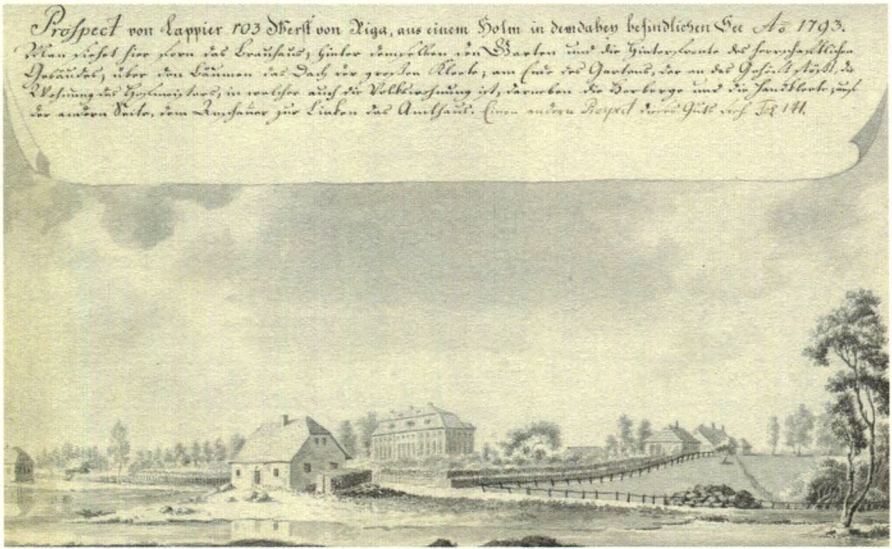 Prospect von Lappier 103 Werst von Riga, aus einem Holm in dem dabey befindlichen See Ao 1793.
Man siehet hier fern das Brauhaus, hinter demselben den Garten und die Hinterfronte des herrschaftlichen
Gebäudes, über den Bäumen das Dach der großen Kleete; am Ende des Gartens, der an das Gehöft stößt, die
Wohnung des Hofmeisters, in welcher auch die Volkswohnung ist, darneben die Herberge und die Handkleete; auf
der andern Seite, dem Zuschauer zur Linken das Amthaus. Einen andern Prospect dieses Guts 141.